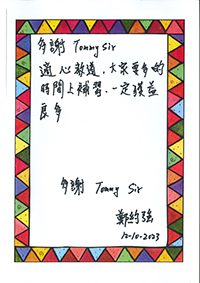 多謝 Tommy Sir
過心教道,大家要多的
時間上補習.一定獲益
良多
多謝 Tommy Sir
鄭約強
12-10-2023